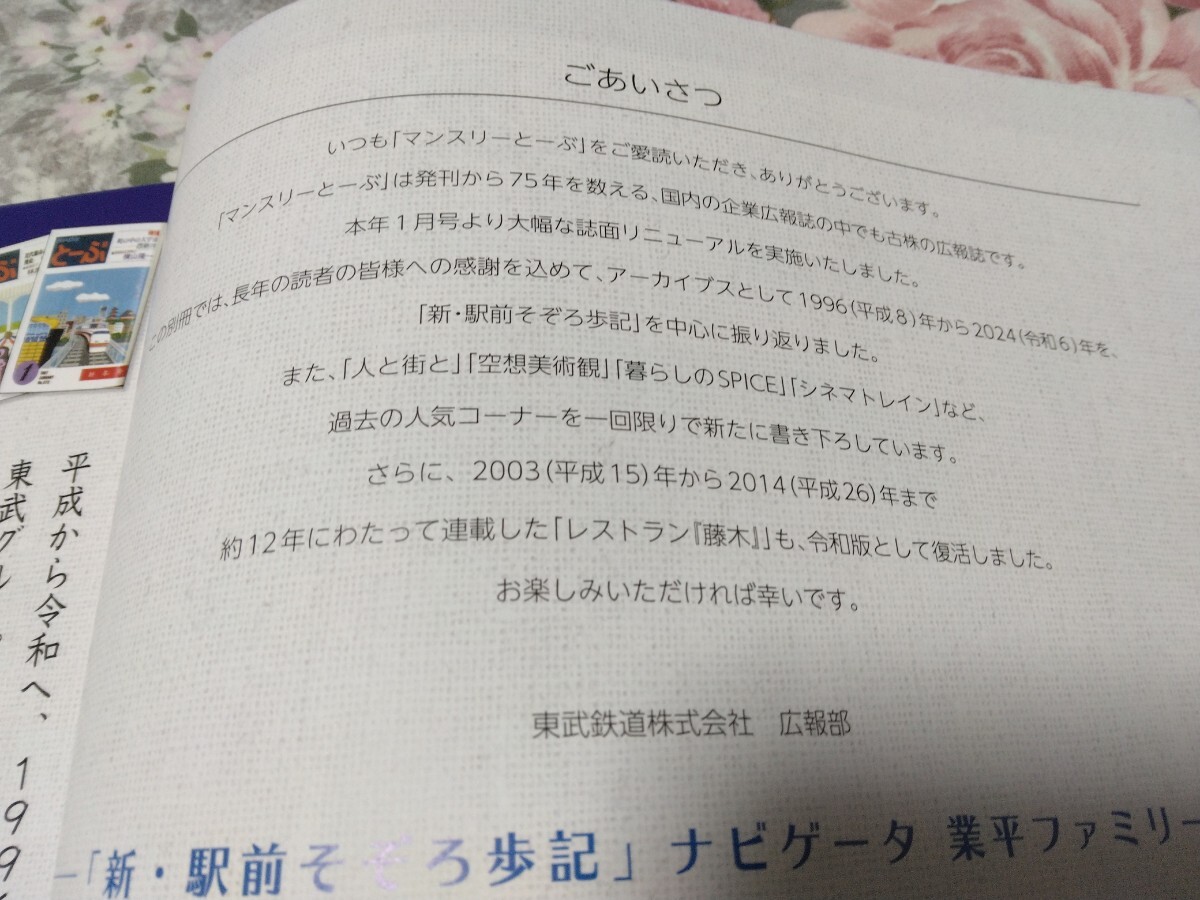 ごあいさつ
いつも「マンスリーとーぶ」をご愛読いただき、ありがとうございます。
「マンスリーとーぶ」は発刊から75年を数える、国内の企業広報誌の中でも古株の広報誌です。
本年1月号より大幅な誌面リニューアルを実施いたしました。
この別冊では、長年の読者の皆様への感謝を込めて、アーカイブスとして1996(平成8)年から2024(令和6)年を、
「新・駅前そぞろ歩記」を中心に振り返りました。
また、「人と街と」「空想美術観」「暮らしのSPICE」「シネマトレイン」など、
過去の人気コーナーを一回限りで新たに書き下ろしています。
さらに、2003(平成15)年から2014(平成26)年まで
約12年にわたって連載した「レストラン『藤木』」も、令和版として復活しました。
お楽しみいただければ幸いです。
東武鉄道株式会社　広報部
「新・駅前そぞろ歩記」ナビゲータ 業平ファミリー
とーぶ
1
平成から令和へ、199
東武グル